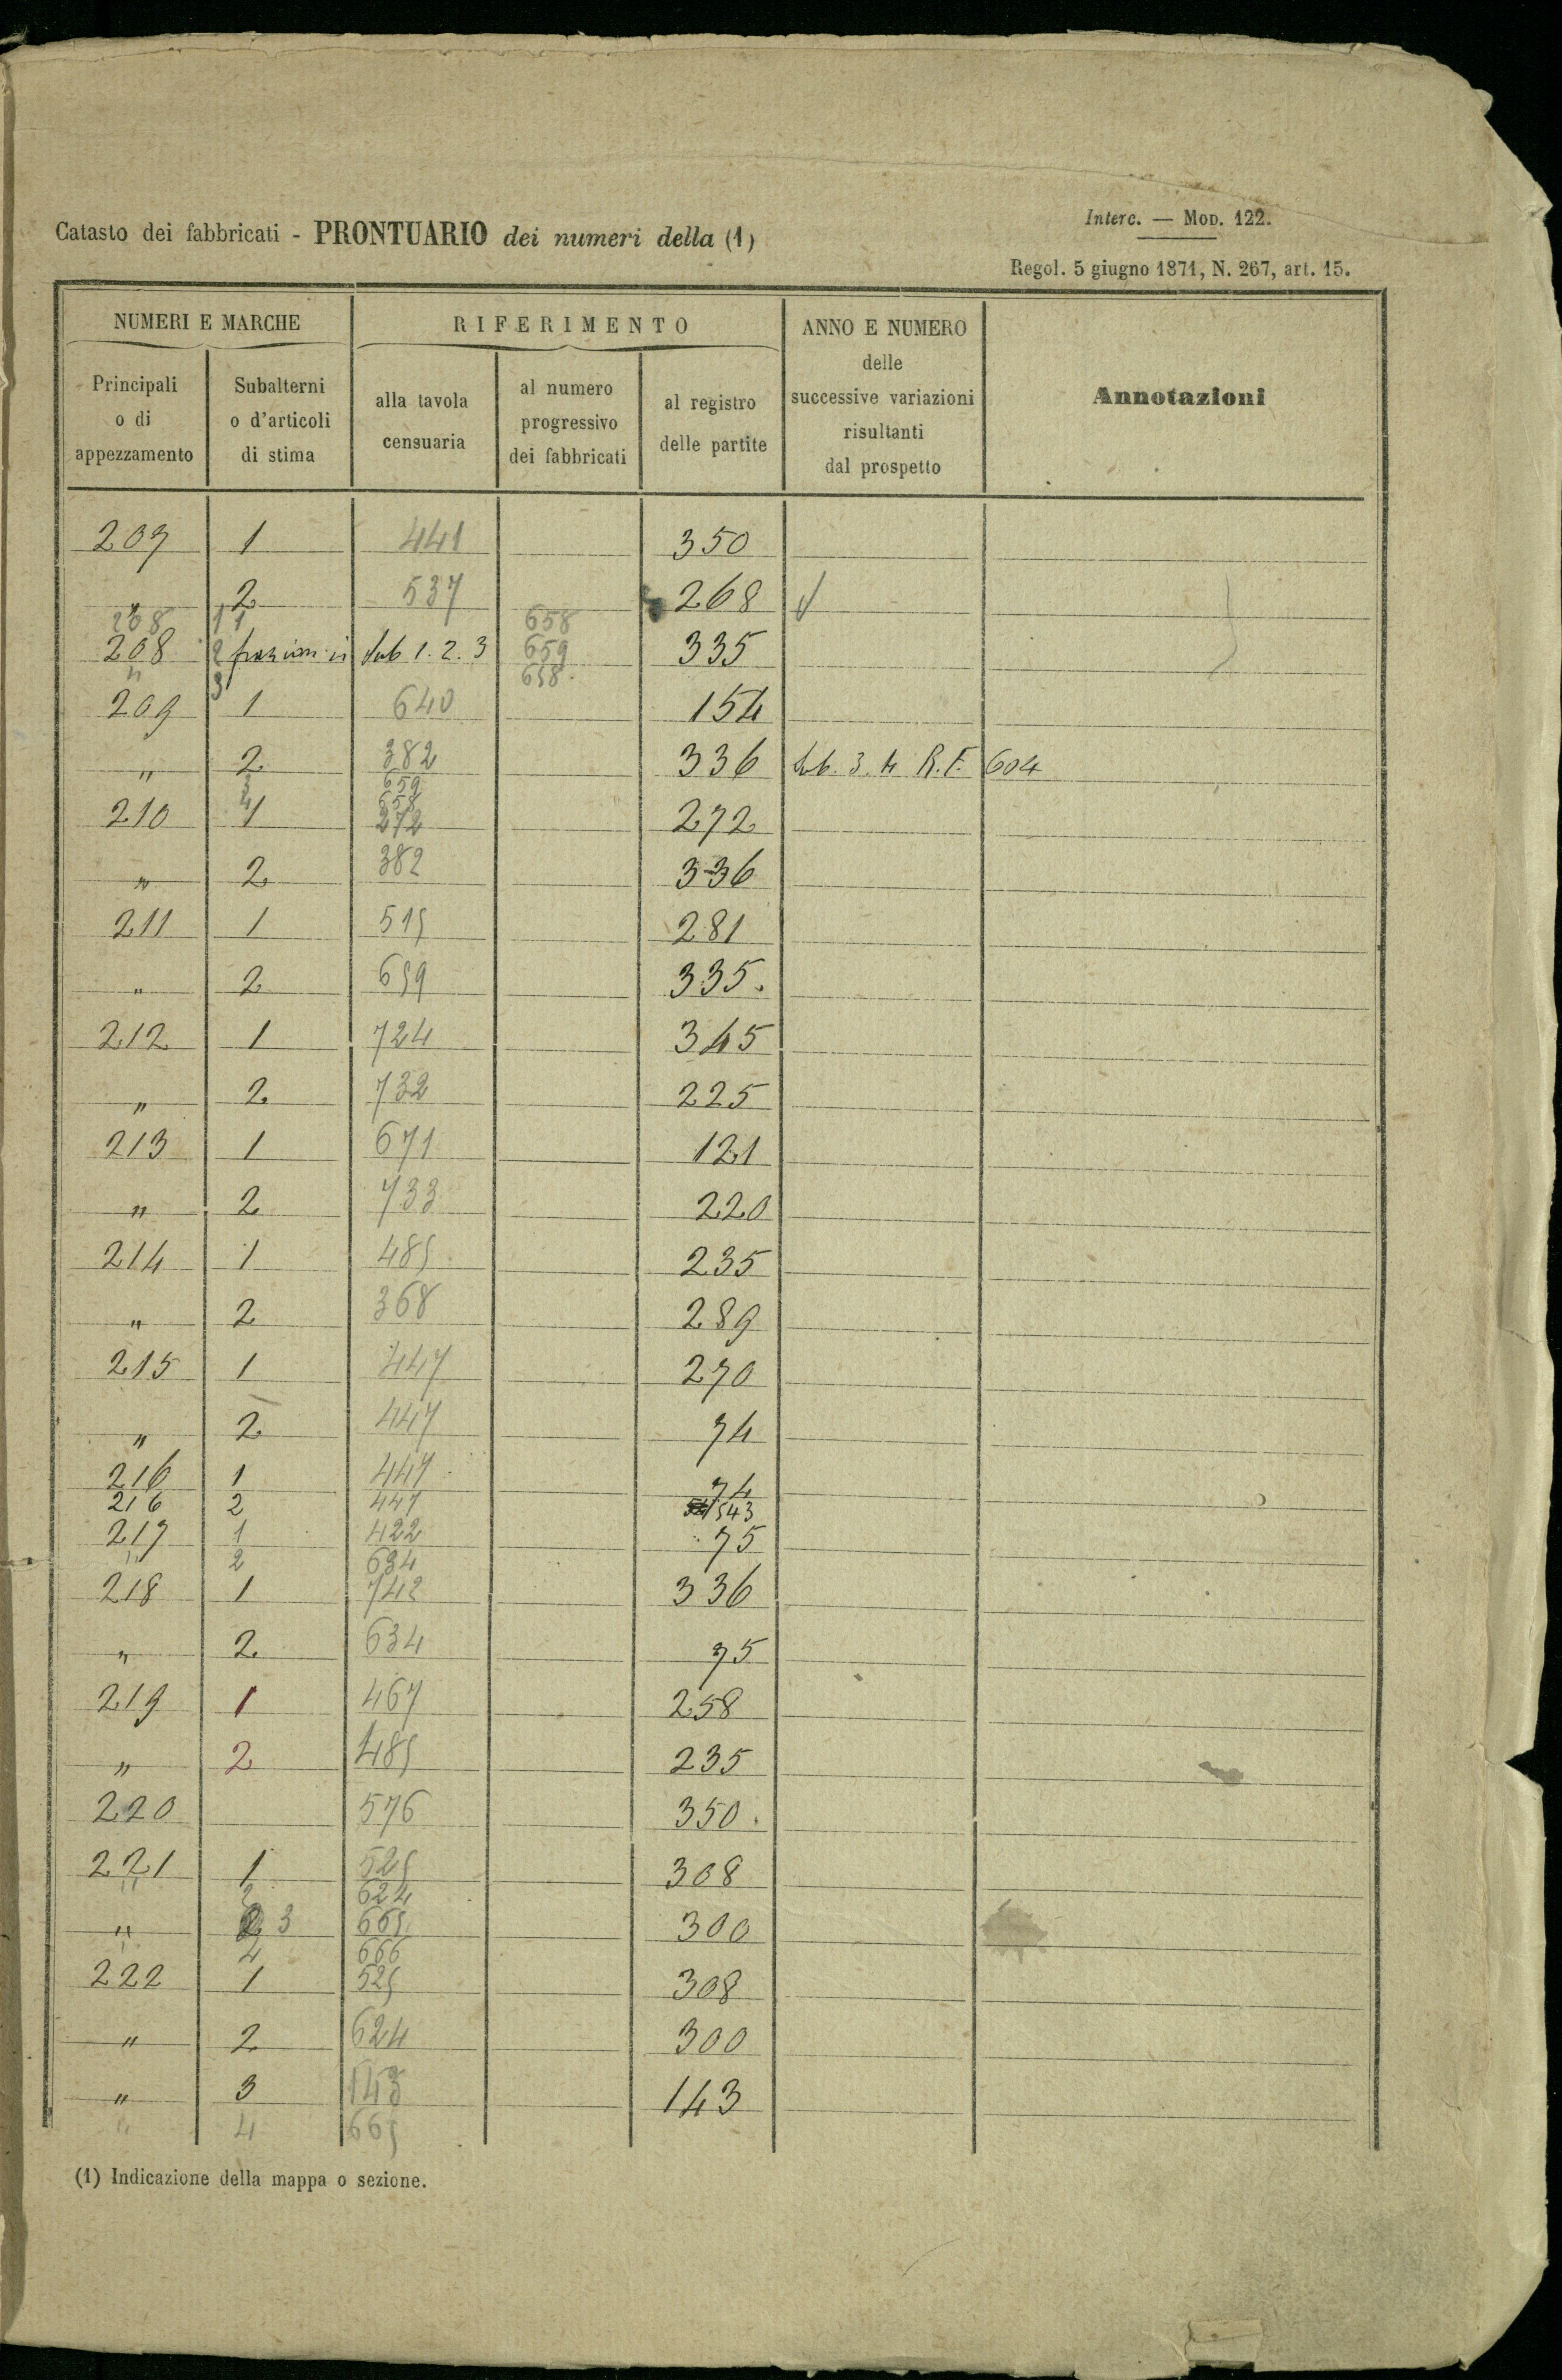 Catasto dei fabbricati - PRONTUARIO dei numeri della (1)
Interc. — Mod. 122.
Regol. 5 giugno 1871, N. 267, art. 15.
NUMERI E MARCHE RIFERIMENTO ANNO E NUMERO delle successive variazioni risultanti dal prospetto Annotazioni
Principali o di appezzamento Subalterni o d'articoli di stima alla tavola censuaria al numero progressivo dei fabbricati al registro delle partite
207 1 441 350
„ 2 537 268
208 1 1 658
208 2 frazion in sub 1. 2. 3 659 335
„ 3 658
209 1 640 154
„ 2 382 336 sub. 3. 4 R. F. 604
3 659
4 658
210 1 272 272
„ 2 382 336
211 1 515 281
„ 2 659 335.
212 1 724 345
„ 2 732 225
213 1 671 121
„ 2 733 220
214 1 485 235
„ 2 368 289
215 1 447 270
„ 2 447 74
216 1 447 74
216 2 447 543
217 1 422 75
„ 2 634
218 1 742 336
„ 2 634 75
219 1 467 258
„ 2 485 235
220 576 350.
221 1 525 308
„ 2 624
„ 3 665 300
„ 4 666
222 1 525 308
„ 2 624 300
„ 3 143 143
„ 4 665
(1) Indicazione della mappa o sezione.